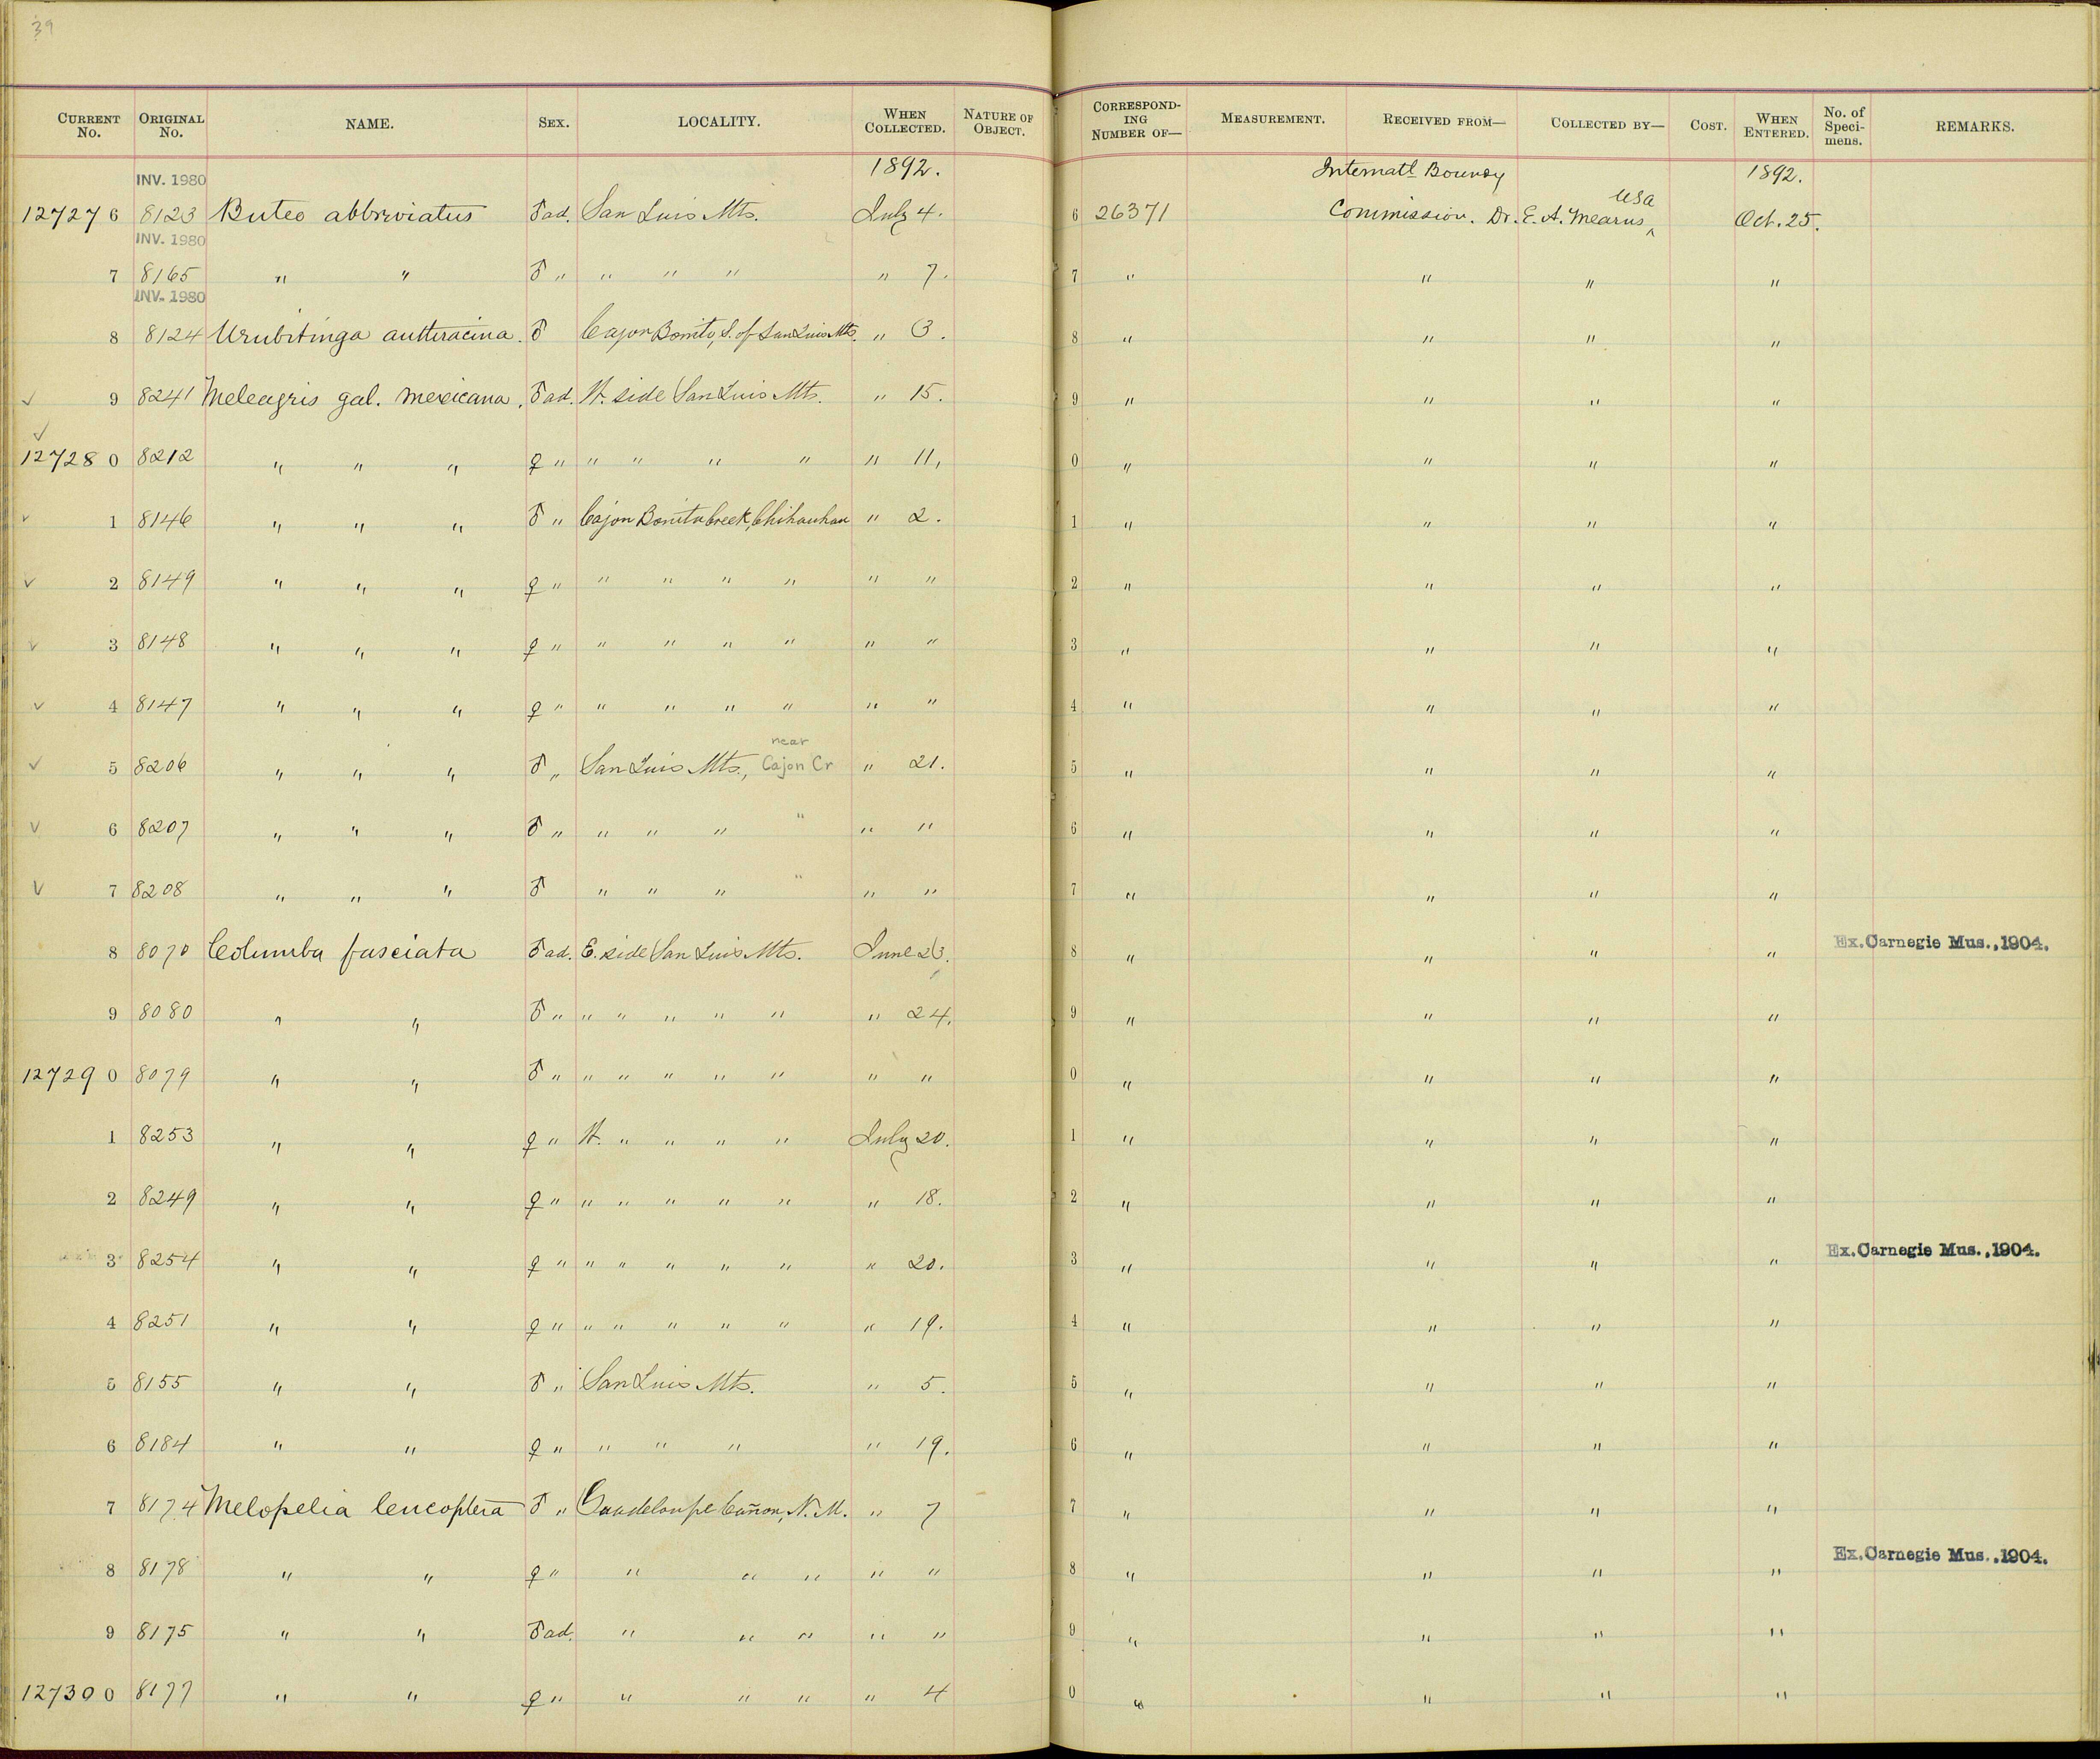 39
CURRENT No. ORIGINAL No. NAME. SEX. LOCALITY. WHEN COLLECTED. NATURE OF OBJECT. CORRESPONDING NUMBER OF— MEASUREMENT. RECEIVED FROM— COLLECTED BY— COST. WHEN ENTERED. No. of Specimens. REMARKS.
INV. 1980 1892. Internatl Boundy 1892.
127276 8123 Buteo abbreviatus ♂ ad. San Luis Mts. July 4. 6 26371 Commission. Dr. E. A. Mearns, USA Oct. 25.
INV. 1980
7 8165 " " ♂ " " " " " 7. 7 " " " "
INV. 1980
8 8124 Urubitinga anthracina. ♂ Cajon Bonito, S. of San Luis Mts. " 3. 8 " " " "
✓ 9 8241 Meleagris gal. mexicana. ♂ ad. W. side San Luis Mts. " 15. 9 " " " "
✓
127280 8212 " " " ♀ " " " " " " 11, 0 " " " "
✓ 1 8146 " " " ♂ " Cajon Bonito Creek, Chihauhau " 2. 1 " " " "
✓ 2 8149 " " " ♀ " " " " " " " 2 " " " "
✓ 3 8148 " " " ♀ " " " " " " " 3 " " " "
✓ 4 8147 " " " ♀ " " " " " " " 4 " " " "
near
✓ 5 8206 " " " ♂ " San Luis Mts., Cajon Cr " 21. 5 " " " "
✓ 6 8207 " " " ♂ " " " " " " " 6 " " " "
✓ 7 8208 " " " ♂ " " " " " " 7 " " " "
8 8070 Columba fasciata ♂ ad. E. side San Luis Mts. June 23. 8 " " " " Ex. Carnegie Mus., 1904.
9 8080 " " ♂ " " " " " " " 24. 9 " " " "
127290 8079 " " ♂ " " " " " " " " 0 " " " "
1 8253 " " ♀ " W. " " " " July 20. 1 " " " "
2 8249 " " ♀ " " " " " " " 18. 2 " " " "
3 8254 " " ♀ " " " " " " " 20. 3 " " " " Ex. Carnegie Mus., 1904.
4 8251 " " ♀ " " " " " " " 19. 4 " " " "
5 8155 " " ♂ " San Luis Mts. " 5. 5 " " " "
6 8184 " " ♀ " " " " " 19. 6 " " " "
7 8174 Melopelia leucoptera ♂ " Guadeloupe Cañon, N. M. " 7 7 " " " "
8 8178 " " ♀ " " " " " " 8 " " " " Ex. Carnegie Mus., 1904.
9 8175 " " ♂ ad. " " " " " 9 " " " "
127300 8177 " " ♀ " " " " " 4 0 " " " "